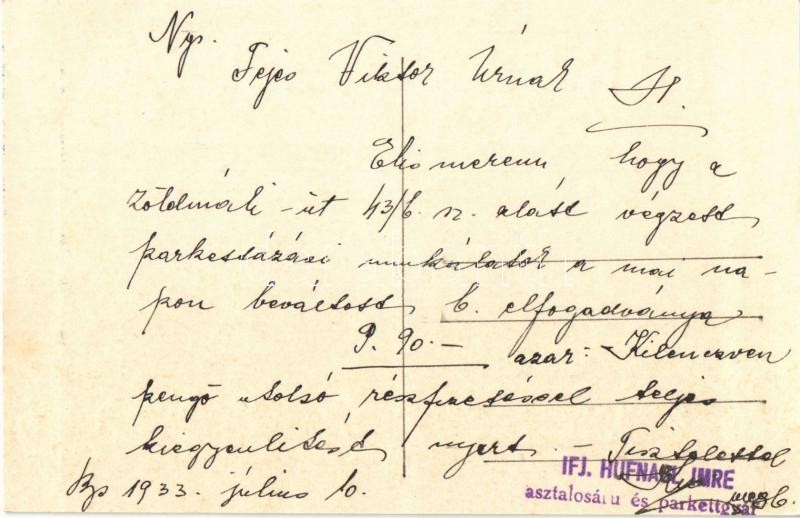 Ngs.
Fejes Viktor Úrnak
Elismerem, hogy a
Zöldmáli-út 43/b. sz. alatt végzett
parkettázási munkálatok a mai na-
pon beváltott b. elfogadványa
P. 90.- azaz:- Kilenczven
pengő utolsó részfizetéssel teljes
kiegyenlitést nyert. - Tisztelettel
IFJ. HUFNAGL IMRE
asztalosáru és parkettgyár
Bp 1933. július 10.